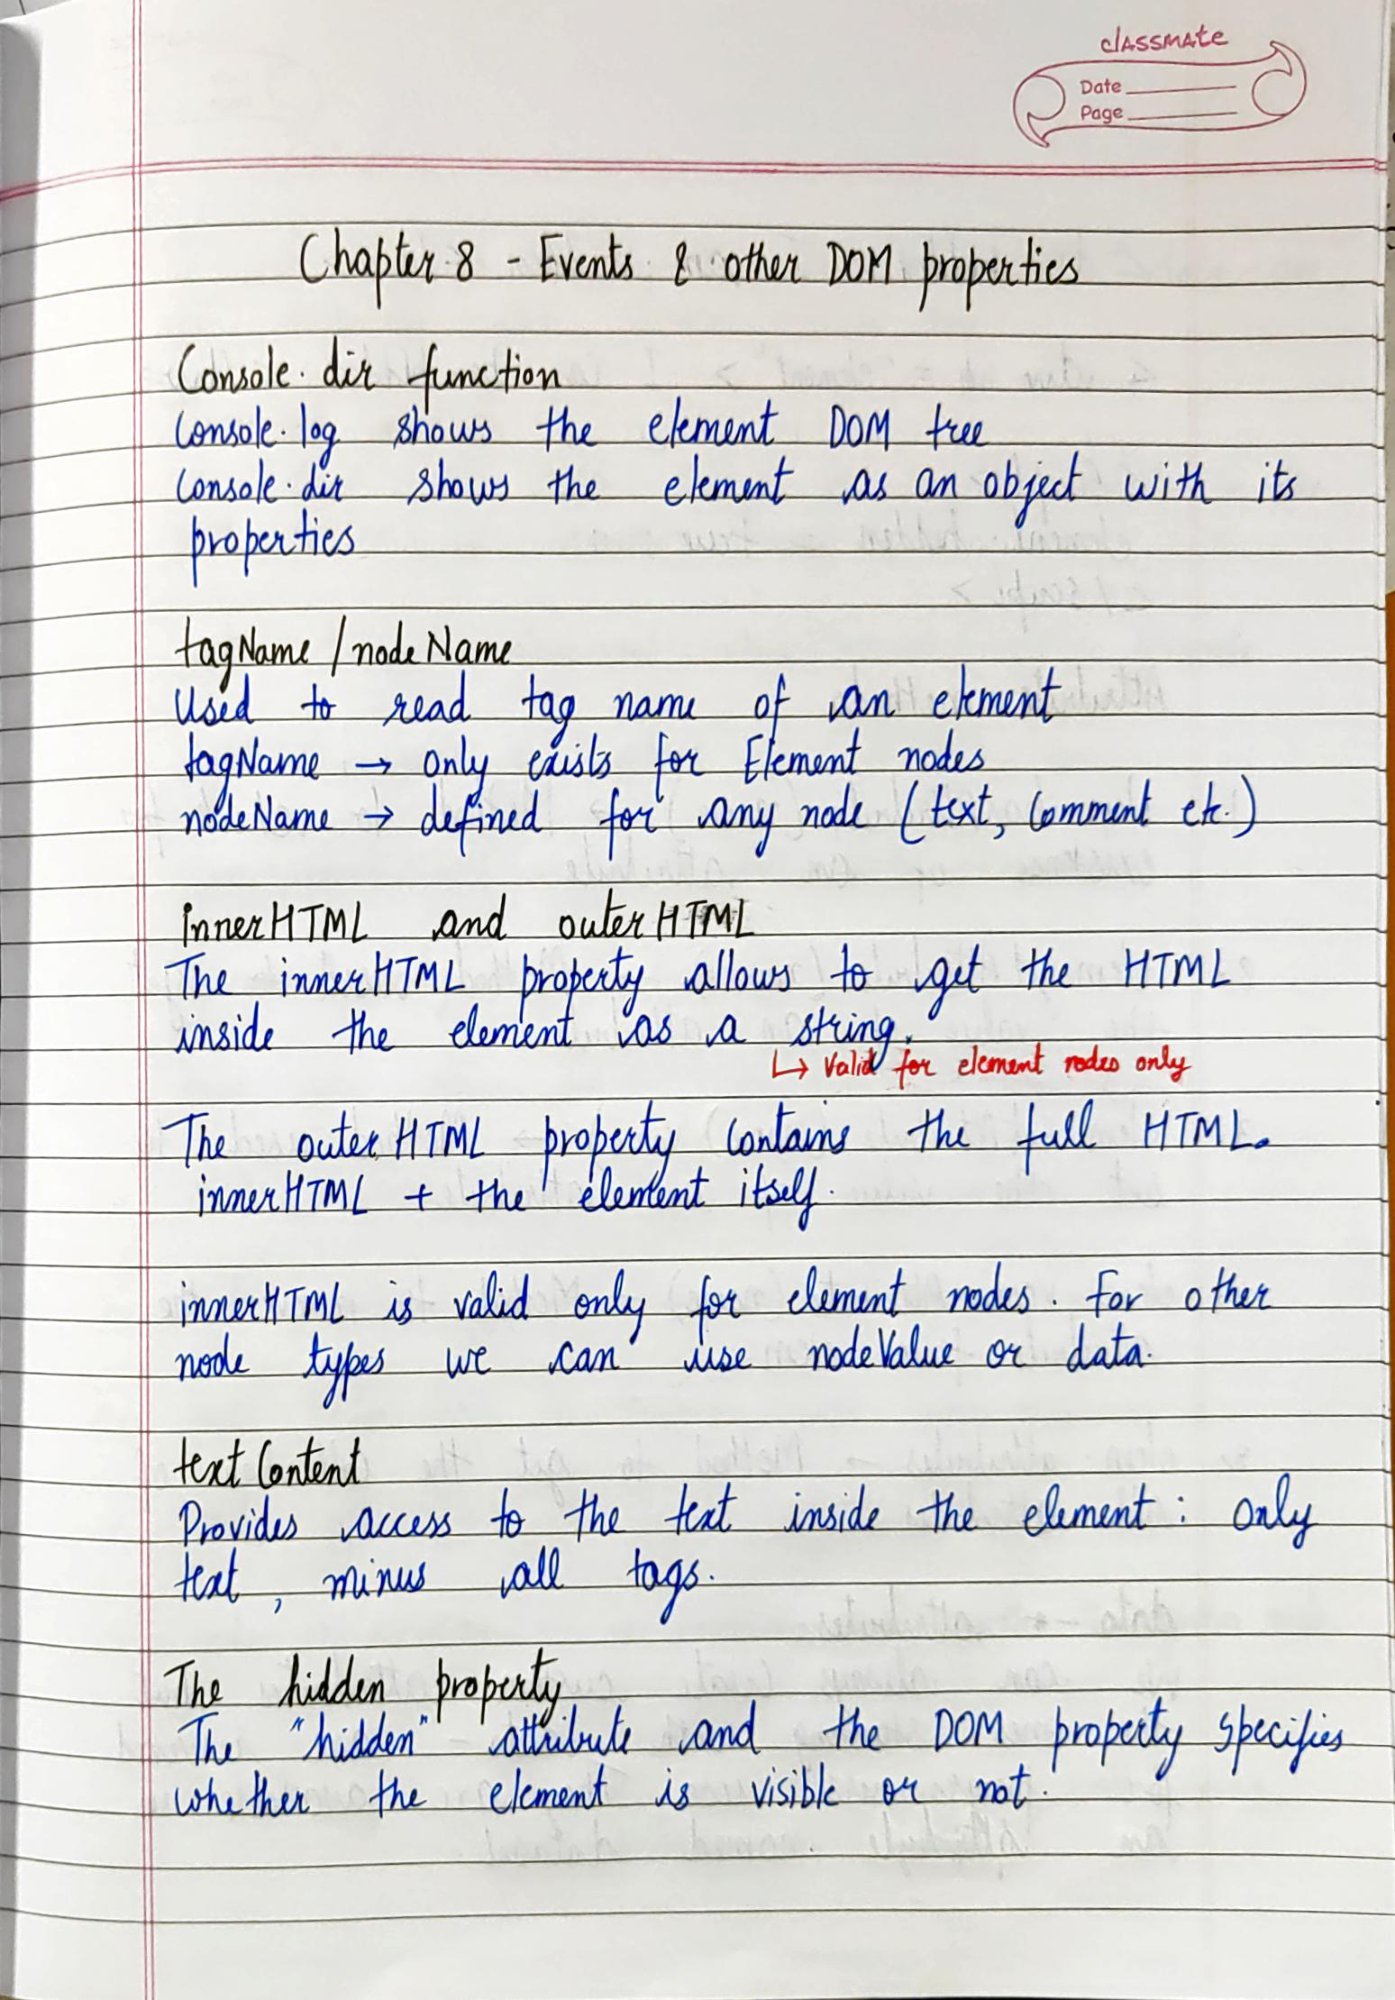 classmate
Date
Page
Chapter 8 - Events & other DOM properties
Console.dir function
Console.log shows the element DOM tree
Console.dir shows the element as an object with its
properties
tagName / nodeName
Used to read tag name of an element
tagName → only exists for Element nodes
nodeName → defined for any node (text, Comment etc.)
innerHTML and outerHTML
The innerHTML property allows to get the HTML
inside the element as a string.
↳ Valid for element nodes only
The outerHTML property contains the full HTML.
innerHTML + the element itself.
innerHTML is valid only for element nodes. For other
node types we can use nodeValue or data.
textContent
Provides access to the text inside the element: only
text, minus all tags.
The hidden property
The "hidden" attribute and the DOM property specifies
whether the element is visible or not.